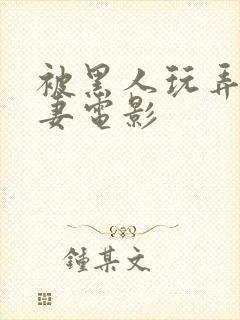 被黑人玩弄
妻電影
鍾某文